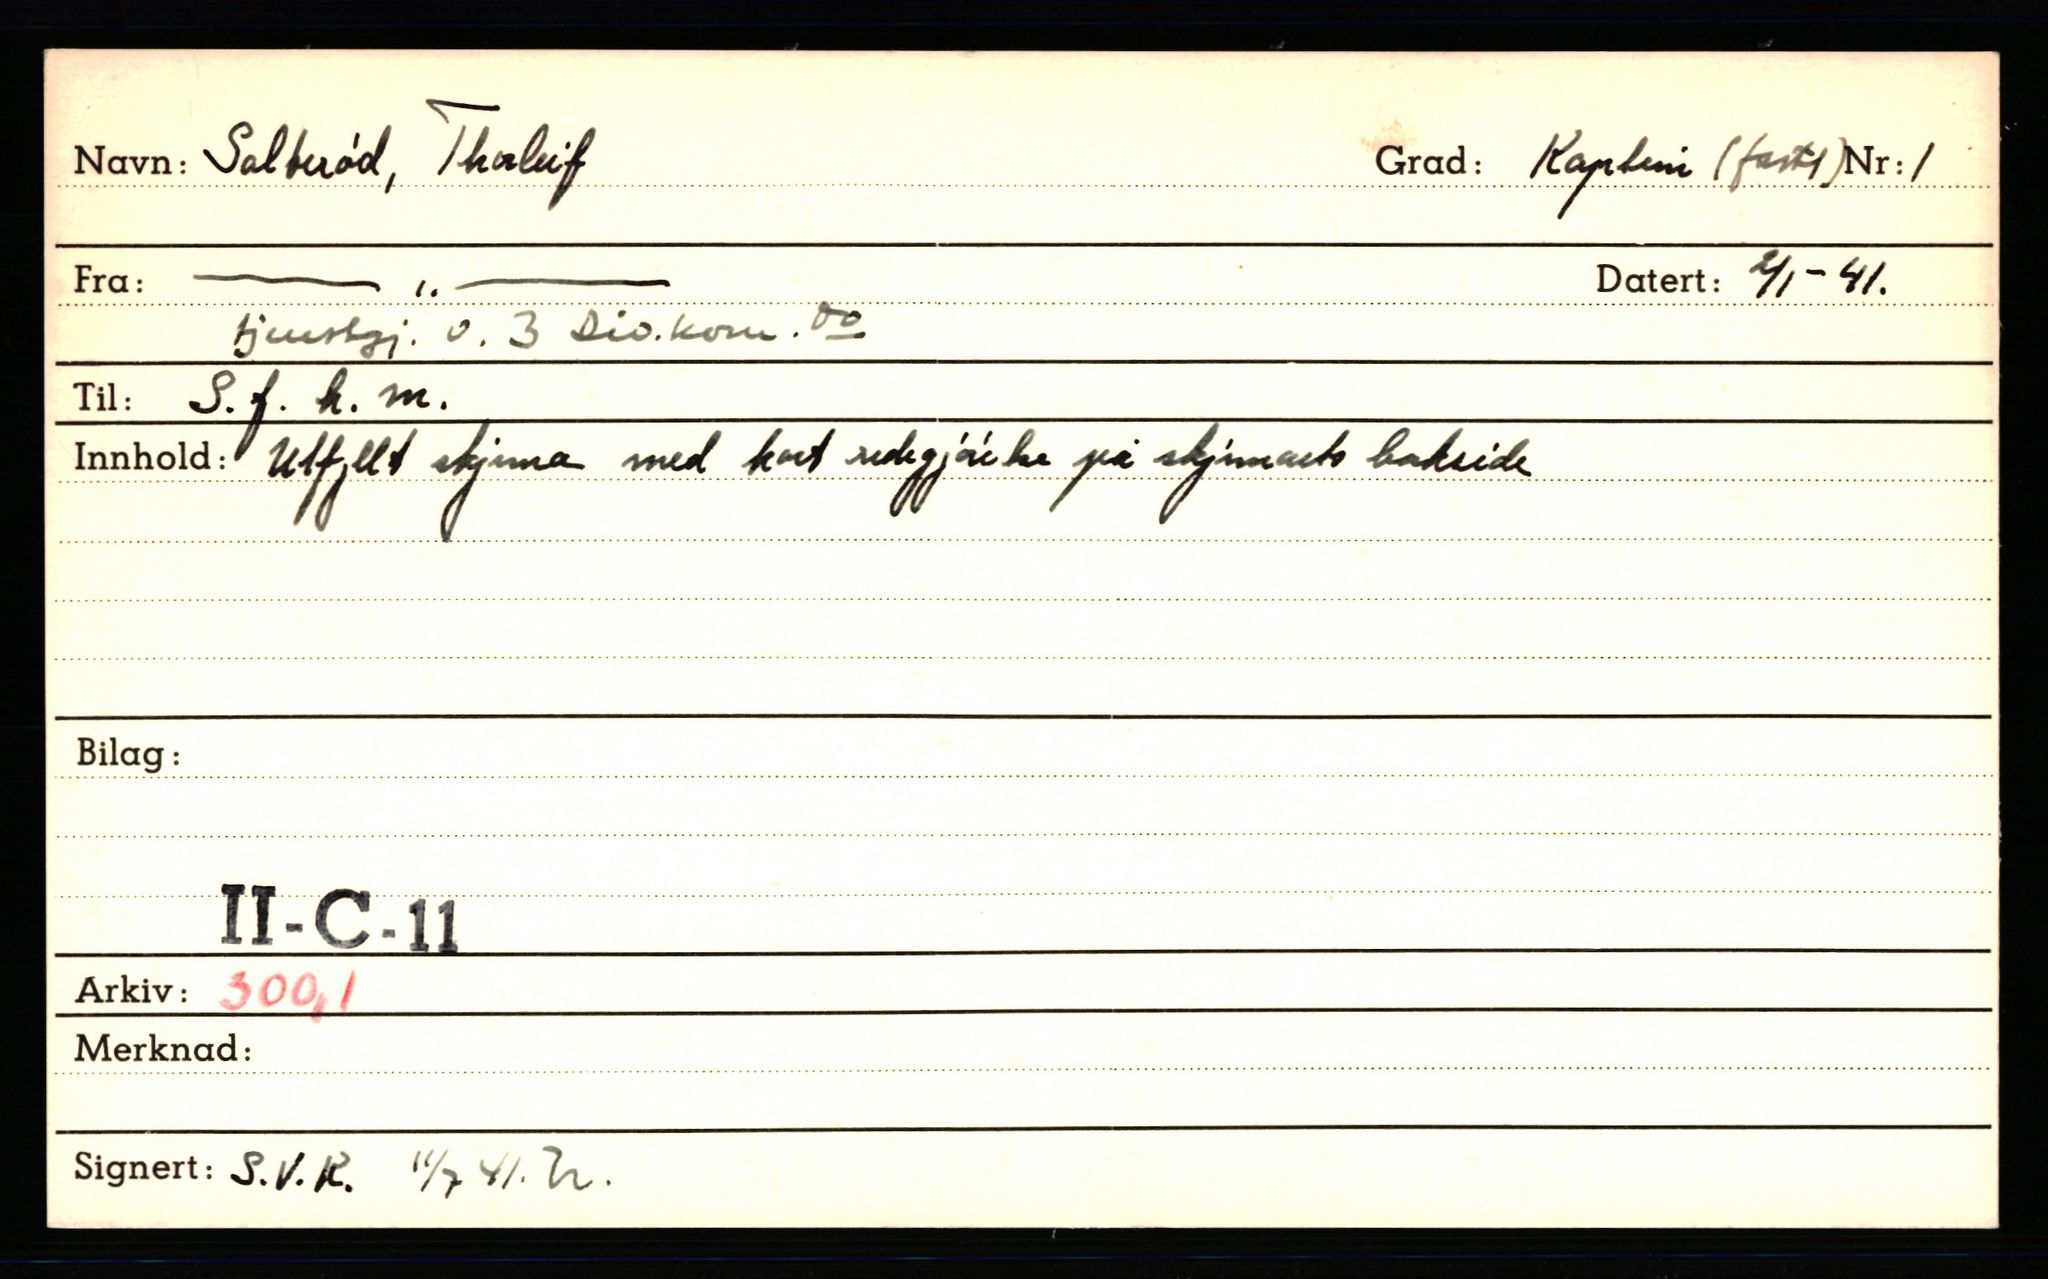 Navn: Salterød, Thorleif Grad: Kaptein Nr: 1
Fra: — " — Datert: 2/1-41.
tjenstgj. v. 3 Div.kom.do
Til: S. f. h. m.
Innhold: Utfyllt skjema med kort redegjörelse på skjemaets bakside
Bilag:
II-C-11
Arkiv: 300,1
Merknad:
Signert: S.V.R. 11/7 41.